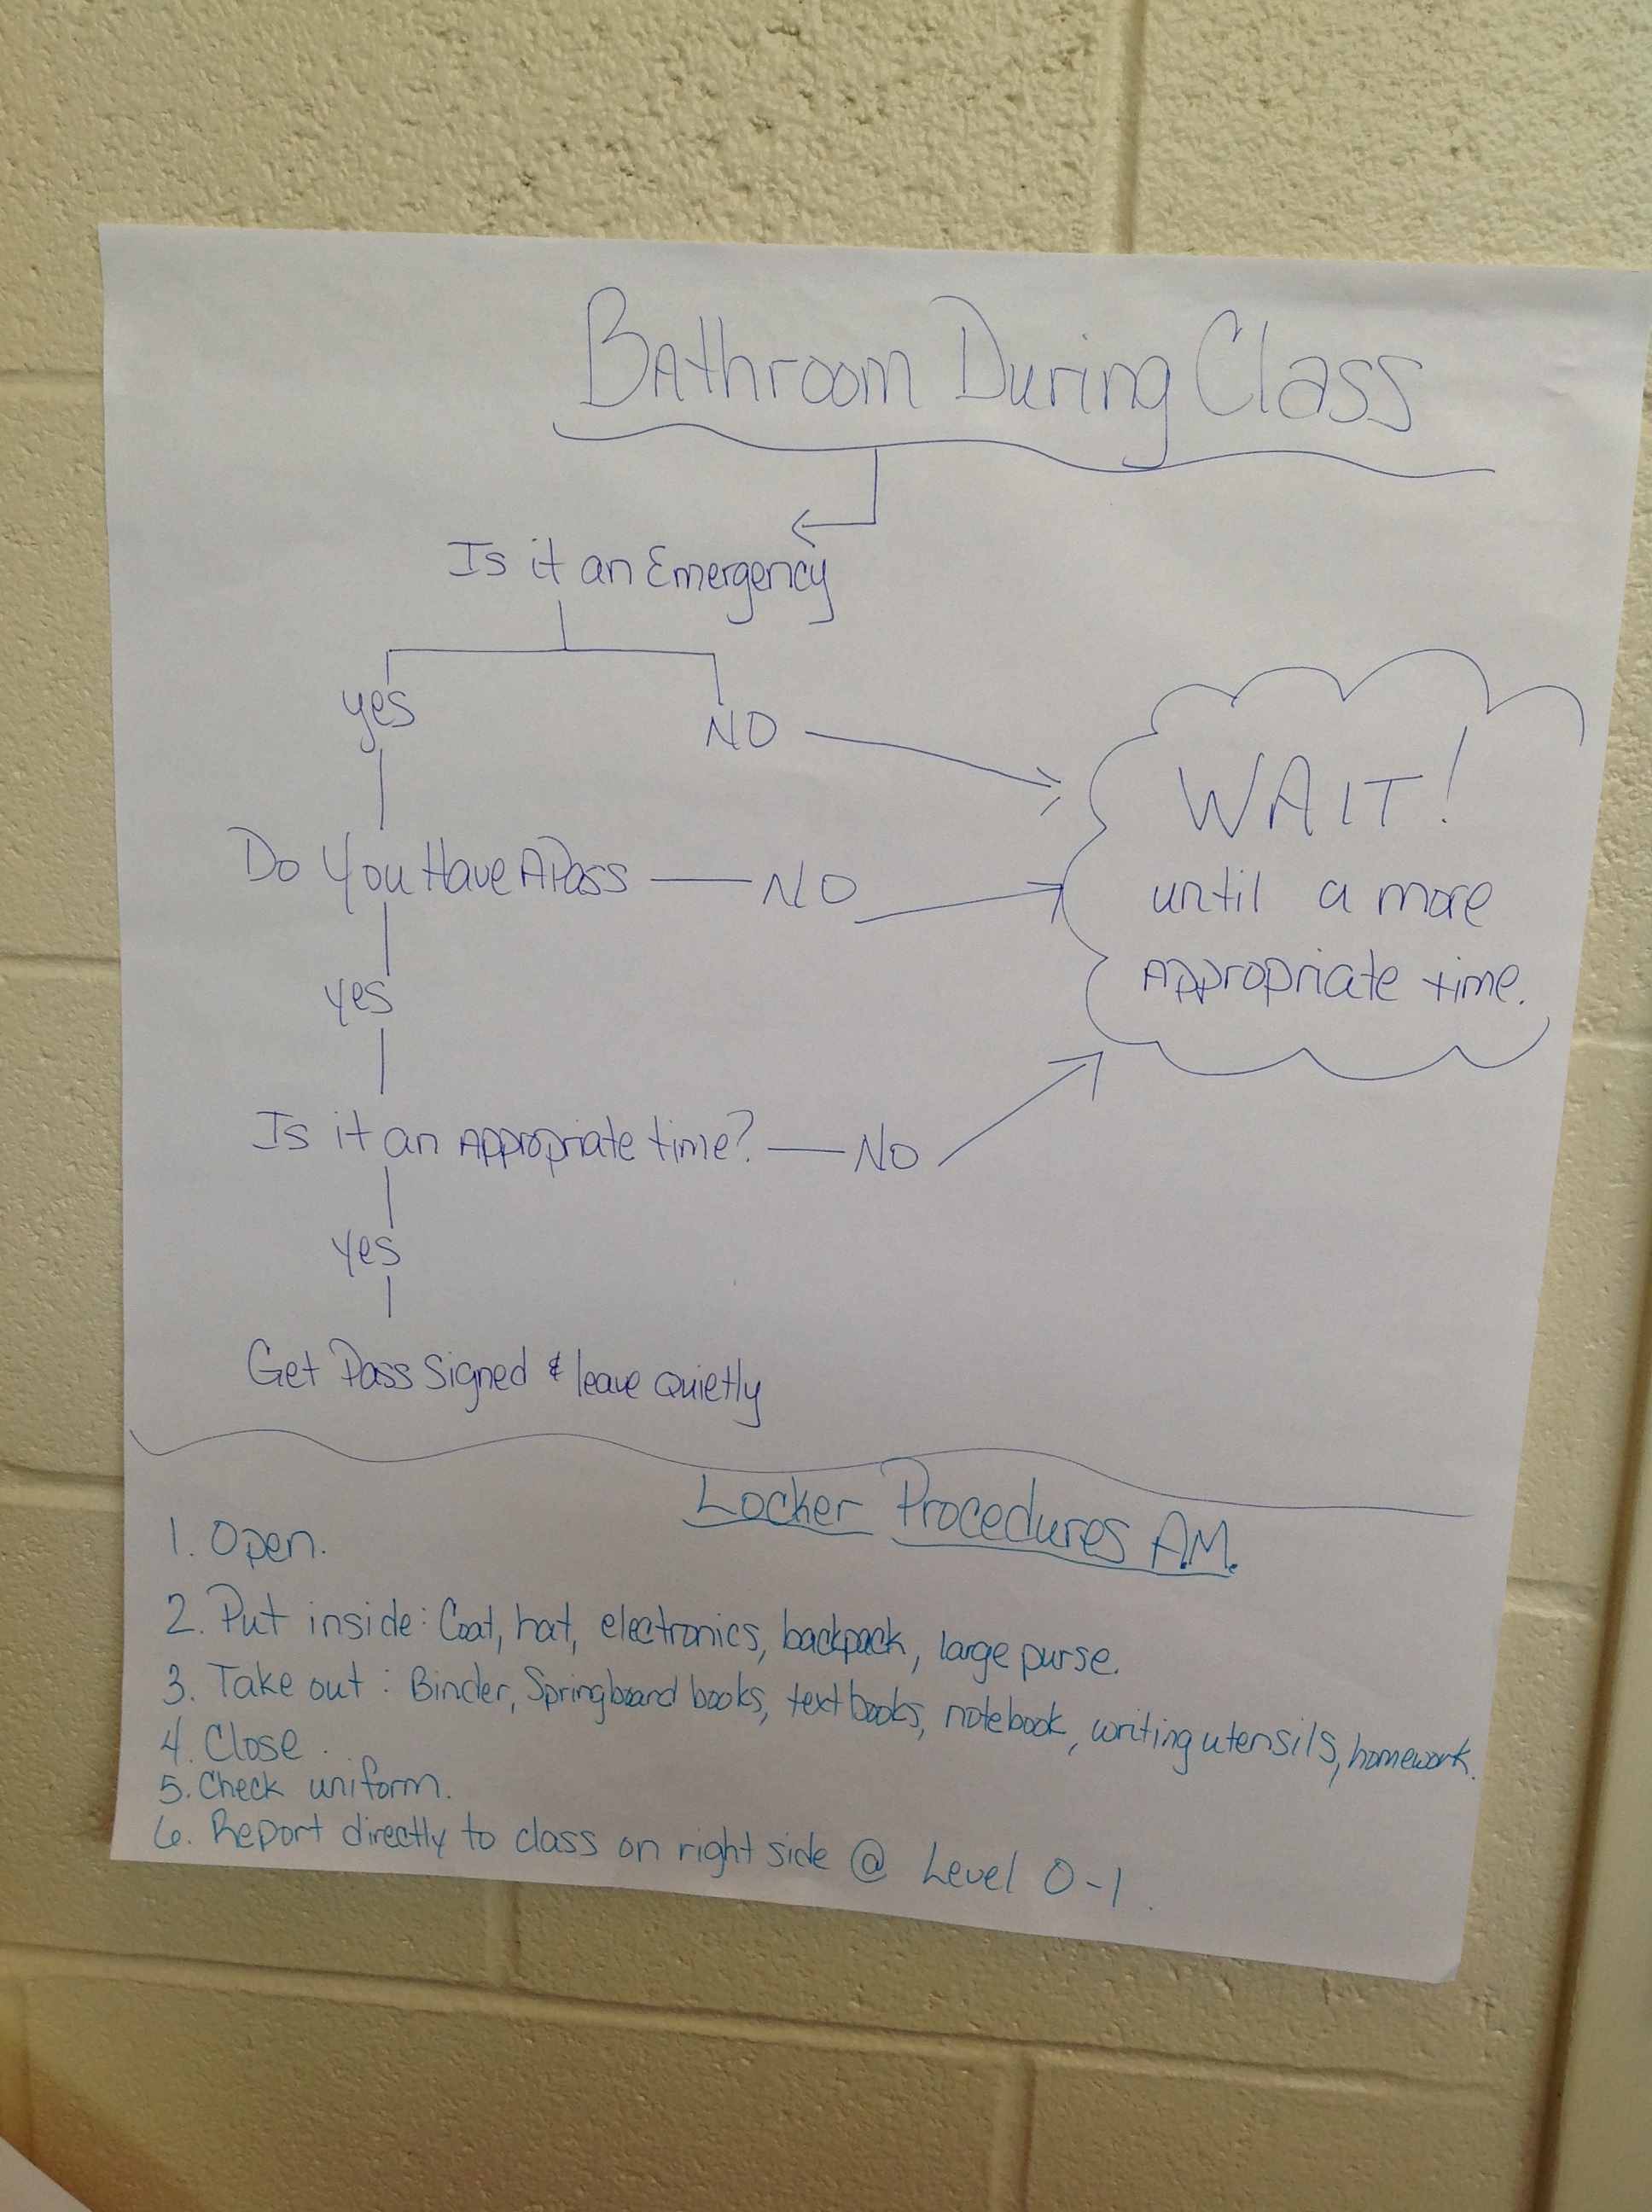 BAthroom During Class
Is it an Emergency
yes
NO
Do You Have A Pass — NO
WAIT!
until a more
Appropriate time.
yes
Is it an Appropriate time? — No
Yes
Get Pass Signed & leave Quietly
Locker Procedures A.M.
1. Open.
2. Put inside: Coat, hat, electronics, backpack, large purse.
3. Take out: Binder, Springboard books, textbooks, notebook, writing utensils, homework.
4. Close.
5. Check uniform.
6. Report directly to class on right side @ Level 0-1.